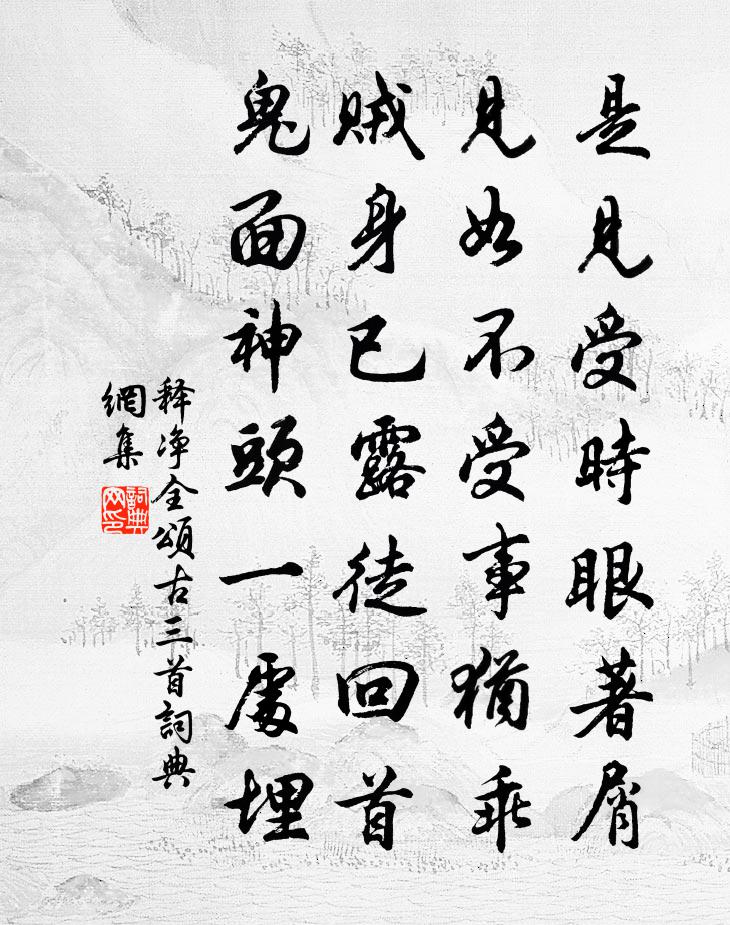 是見受時眼著屑
見如不受事猶乖
賊身已露徒回首
鬼面神頭一處埋
释净全頌古三首詞典
網集
詞典
网印